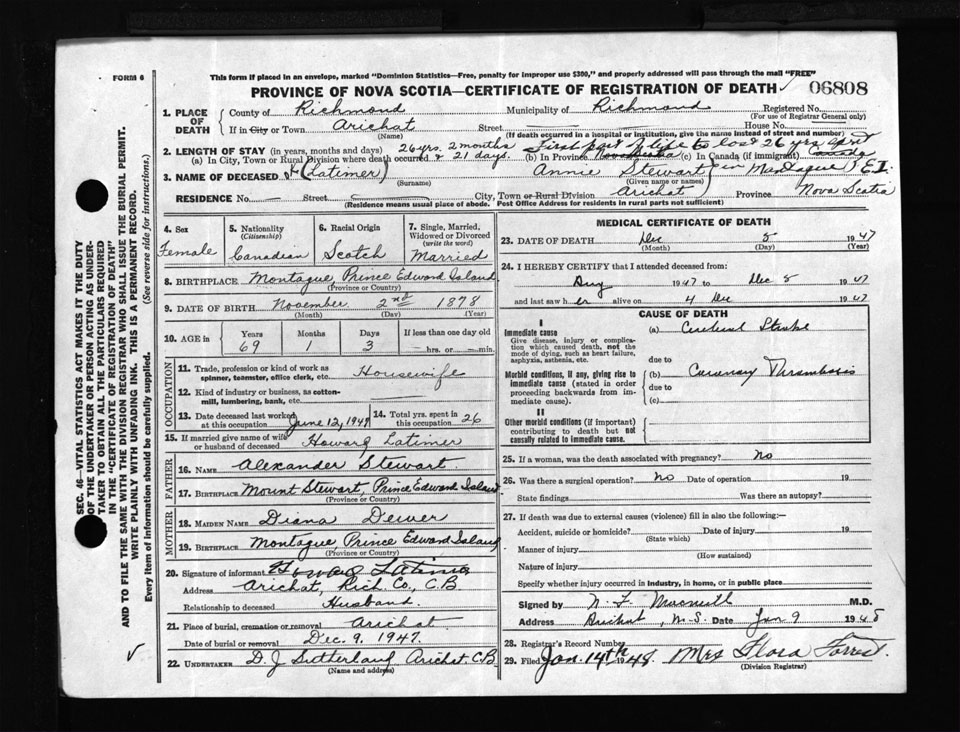 FORM 6
This form if placed in an envelope, marked "Dominion Statistics—Free, penalty for improper use $300," and properly addressed will pass through the mail "FREE"
PROVINCE OF NOVA SCOTIA—CERTIFICATE OF REGISTRATION OF DEATH 06808
1. PLACE OF DEATH
County of Richmond Municipality of Richmond Registered No.
(For use of Registrar General only)
If in City or Town Arichat Street House No.
(Name) (If death occurred in a hospital or institution, give the name instead of street and number)
2. LENGTH OF STAY (in years, months and days) 26 yrs. 2 months First part of life to last 26 yrs
(a) In City, Town or Rural Division where death occurred & 21 days. (b) In Province Nova Scotia (c) In Canada (if immigrant) Canada
3. NAME OF DECEASED (Latimer) Annie Stewart in Montague P.E.I.
(Surname) (Given name or names)
RESIDENCE No. Street City, Town or Rural Division Arichat Province Nova Scotia
(Residence means usual place of abode. Post Office Address for residents in rural parts not sufficient)
4. Sex
Female
5. Nationality
(Citizenship)
Canadian
6. Racial Origin
Scotch
7. Single, Married, Widowed or Divorced
(write the word)
Married
8. BIRTHPLACE Montague Prince Edward Island
(Province or Country)
9. DATE OF BIRTH November 2nd 1878
(Month) (Day) (Year)
10. AGE in
Years Months Days If less than one day old
69 1 3 hrs. or min.
OCCUPATION
11. Trade, profession or kind of work as spinner, teamster, office clerk, etc. Housewife
12. Kind of industry or business, as cotton-mill, lumbering, bank, etc.
13. Date deceased last worked at this occupation June 12, 1947
14. Total yrs. spent in 26
15. If married give name of wife or husband of deceased Howard Latimer
FATHER
16. NAME Alexander Stewart
17. BIRTHPLACE Mount Stewart, Prince Edward Island
(Province or Country)
MOTHER
18. MAIDEN NAME Diana Dewer
19. BIRTHPLACE Montague, Prince Edward Island
(Province or Country)
20. Signature of informant Howard Latimer
Address Arichat, Rich. Co., C.B
Relationship to deceased Husband.
21. Place of burial, cremation or removal Arichat
Date of burial or removal Dec. 9. 1947.
22. UNDERTAKER D. J Sutterland Arichat C.B
(Name and address)
MEDICAL CERTIFICATE OF DEATH
23. DATE OF DEATH Dec 5 1947
(Month) (Day) (Year)
24. I HEREBY CERTIFY that I attended deceased from:
Aug 1947 to Dec 5 1947
and last saw h er alive on 4 Dec 1947
CAUSE OF DEATH
I
Immediate cause
Give disease, injury or complication which caused death, not the mode of dying, such as heart failure, asphyxia, asthenia, etc.
(a) Stroke
due to
Morbid conditions, if any, giving rise to immediate cause (stated in order proceeding backwards from immediate cause).
(b) Coronary Thrombosis
due to
(c)
II
Other morbid conditions (if important) contributing to death but not causally related to immediate cause.
25. If a woman, was the death associated with pregnancy? No
26. Was there a surgical operation? No Date of operation 19
State findings Was there an autopsy?
27. If death was due to external causes (violence) fill in also the following:—
Accident, suicide or homicide? Date of injury 19
(State which)
Manner of injury
(How sustained)
Nature of injury
Specify whether injury occurred in industry, in home, or in public place
Signed by M.D.
Address Arichat, N.S. Date Jan 9 1948
28. Registrar's Record Number
29. Filed Jan. 14th 1948. Mrs Flora Forrest.
(Division Registrar)
SEC. 46—VITAL STATISTICS ACT MAKES IT THE DUTY
OF THE UNDERTAKER OR PERSON ACTING AS UNDER-
TAKER TO OBTAIN ALL THE PARTICULARS REQUIRED
IN THE "CERTIFICATE OF REGISTRATION OF DEATH"
AND TO FILE THE SAME WITH THE DIVISION REGISTRAR WHO SHALL ISSUE THE BURIAL PERMIT.
WRITE PLAINLY WITH UNFADING INK. THIS IS A PERMANENT RECORD.
Every item of information should be carefully supplied. (See reverse side for instructions.)